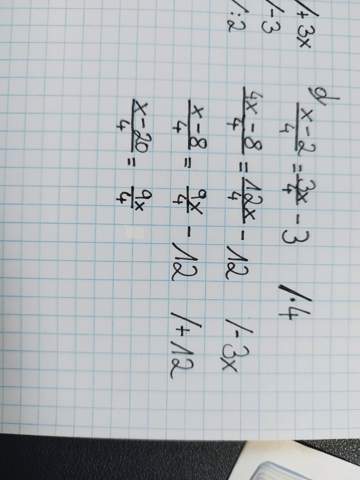 /+3x
/-3
/:2
d) \frac{x-2}{4} = \frac{3x}{4} - 3 /·4
\frac{4x-8}{4} = \frac{12x}{4} - 12 /-3x
\frac{x-8}{4} = \frac{9x}{4} - 12 /+12
\frac{x-20}{4} = \frac{9x}{4}